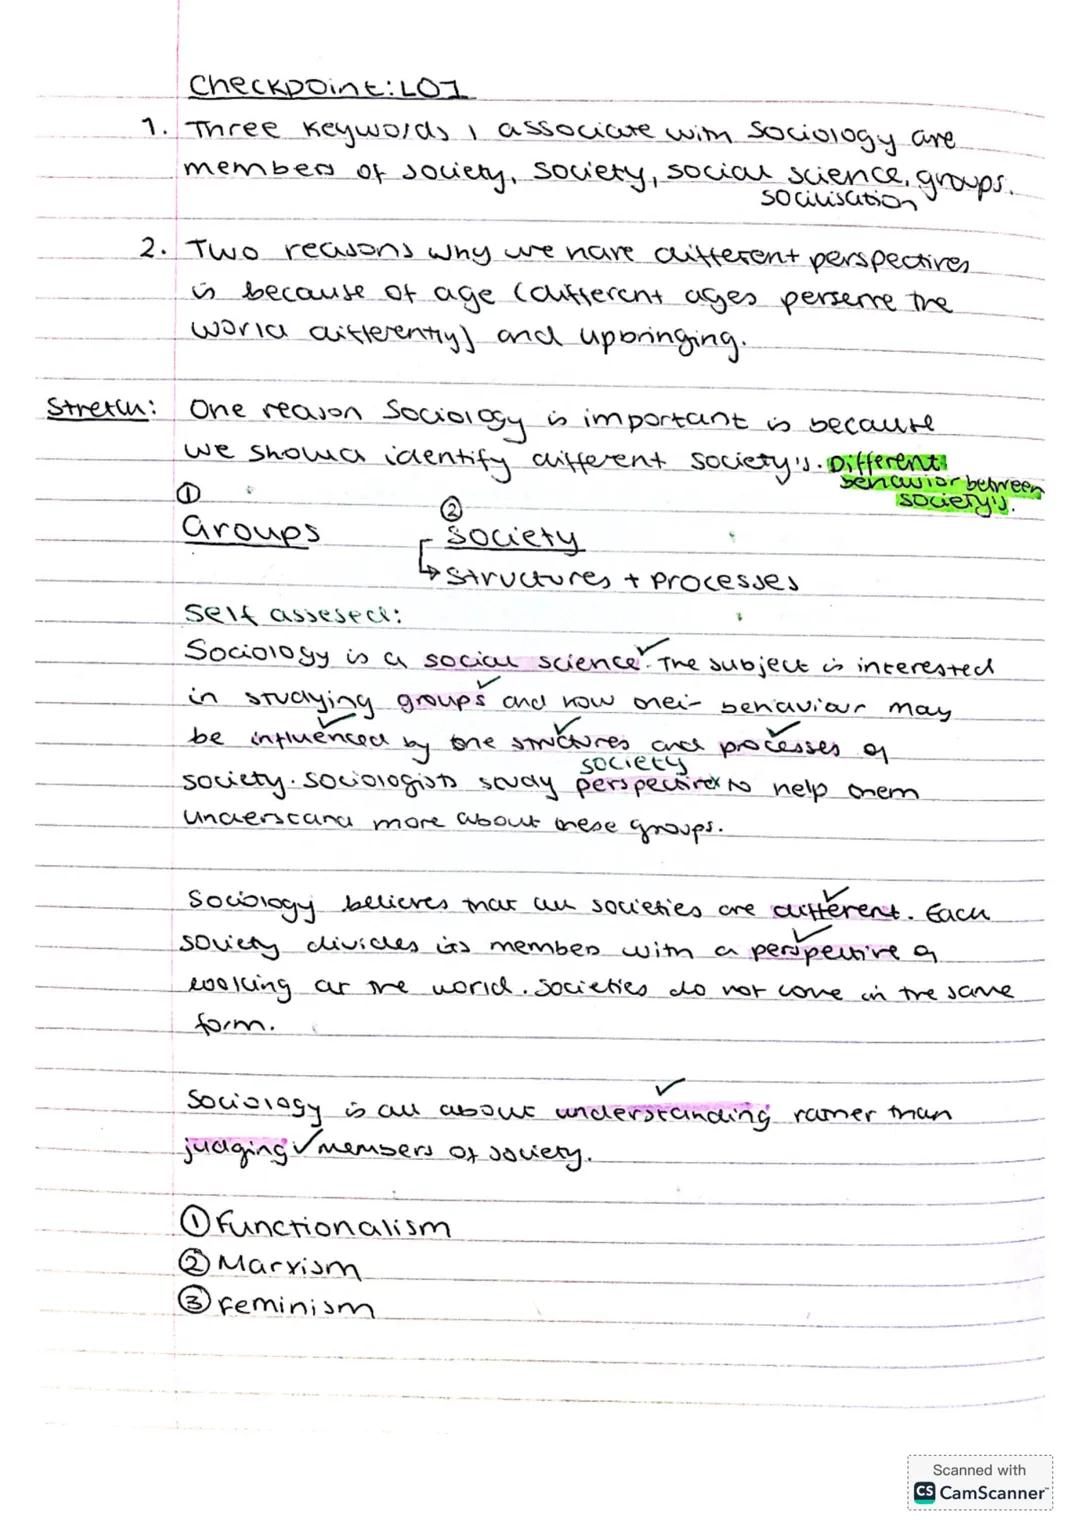 Checkpoint: LO1
1. Three keywords I associate with Sociology are
members of society, society, social science, groups.
socilisation
2. Two reasons why we have different perspectives
is because of age (different ages perserve the
world differently) and upbringing.
Stretch: One reason Sociology is important is because
we should identify different society's. Different
behavior between
society's.
① ②
Groups Society
↳ Structures + Processes
Self assesed:
Sociology is a social science ✓. The subject is interested
in studying groups ✓ and how their behaviour may
be influenced ✓ by the structures ✓ and processes ✓ of
society
society. Sociologists study perspective x to help them
understand more about these groups.
Sociology believes that all societies are different ✓. Each
society divides its members with a perspective ✓ of
looking at the world. Societies do not come in the same
form.
Sociology is all about understanding ✓ rather than
judging ✓ members of society.
① Functionalism
② Marxism
③ Feminism
Scanned with
CS CamScanner